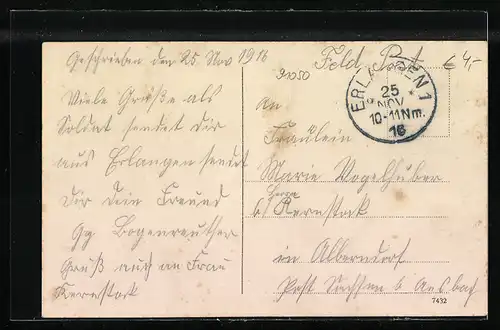 Geschrieben den 25 Nov 1916
Viele Grüße als
Soldat sendet dir
aus Erlangen sendet
dir dein Freund
Gg Bogenreuther
Gruß auch an Frau
Kernstock
91050
Feld Post
€ 4,-
ERLANGEN 1
25
NOV.
10-11 Nm.
16
An
Fräulein
Marie Vogelhuber
Herrn
b/ Kernstock
in Alberndorf
Post Sachsen b Ansbach
7432